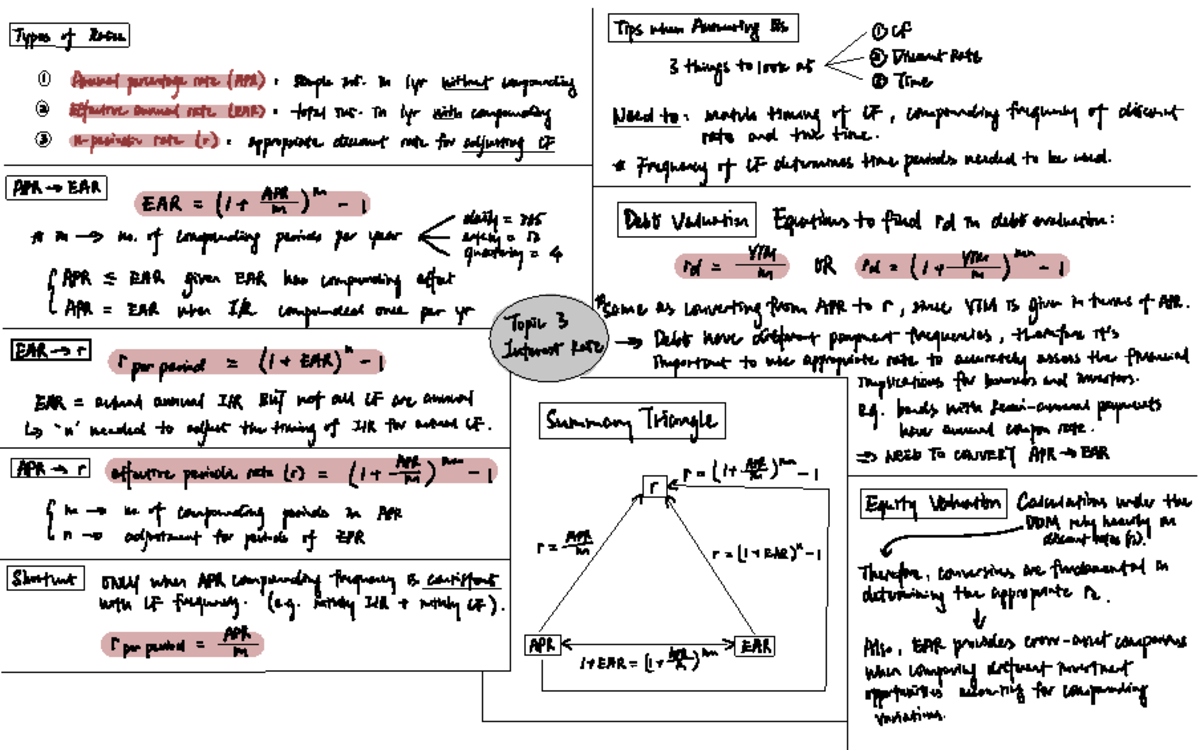 Types of Rates
① Annual percentage rate (APR) : simple int. in 1yr without compounding
② Effective annual rate (EAR) : total int. in 1yr with compounding
③ n-periodic rate (r) : appropriate discount rate for adjusting CF
APR → EAR
EAR = (1 + APR/m)^m - 1
* m → no. of compounding periods per year
daily = 365
= 12
quarterly = 4
APR ≤ EAR given EAR has compounding effect
APR = EAR when I/R compounded once per yr
EAR → r
r per period = (1 + EAR)^n - 1
EAR = actual annual I/R BUT not all CF are annual
↳ "n" needed to adjust the timing of I/R for actual CF.
APR → r
effective periodic rate (r) = (1 + APR/m)^mn - 1
m → no. of compounding periods in APR
n → adjustment for periods of EPR
Shortcut
ONLY when APR compounding frequency is consistent
with CF frequency. (e.g. mthly I/R + mthly CF).
r per period = APR/m
Topic 3
Interest Rate
Tips when Answering Qs
3 things to look at
① CF
② Discount Rate
③ Time
Need to : match timing of CF, compounding frequency of discount
rate and the time.
* Frequency of CF determines time periods needed to be used.
Debt Valuation
Equations to find rd in debt evaluation:
rd = YTM/m OR rd = (1 + YTM/m)^mn - 1
*Same as converting from APR to r, since YTM is given in terms of APR.
→ Debt have different payment frequencies, therefore it's
important to use appropriate rate to accurately assess the financial
implications for borrowers and investors.
e.g. bonds with semi-annual payments
have annual coupon rate.
⇒ NEED TO CONVERT APR → EAR
Summary Triangle
r
r = (1 + APR/m)^mn - 1
r = APR/m
r = (1 + EAR)^n - 1
APR
EAR
1 + EAR = (1 +
Equity Valuation
Calculations under the
DDM rely heavily on
discount rates
Therefore, conversions are fundamental in
determining the appropriate
Also, EAR provides cross-asset comparisons
when comparing different investment
opportunities accounting for compounding
variations.